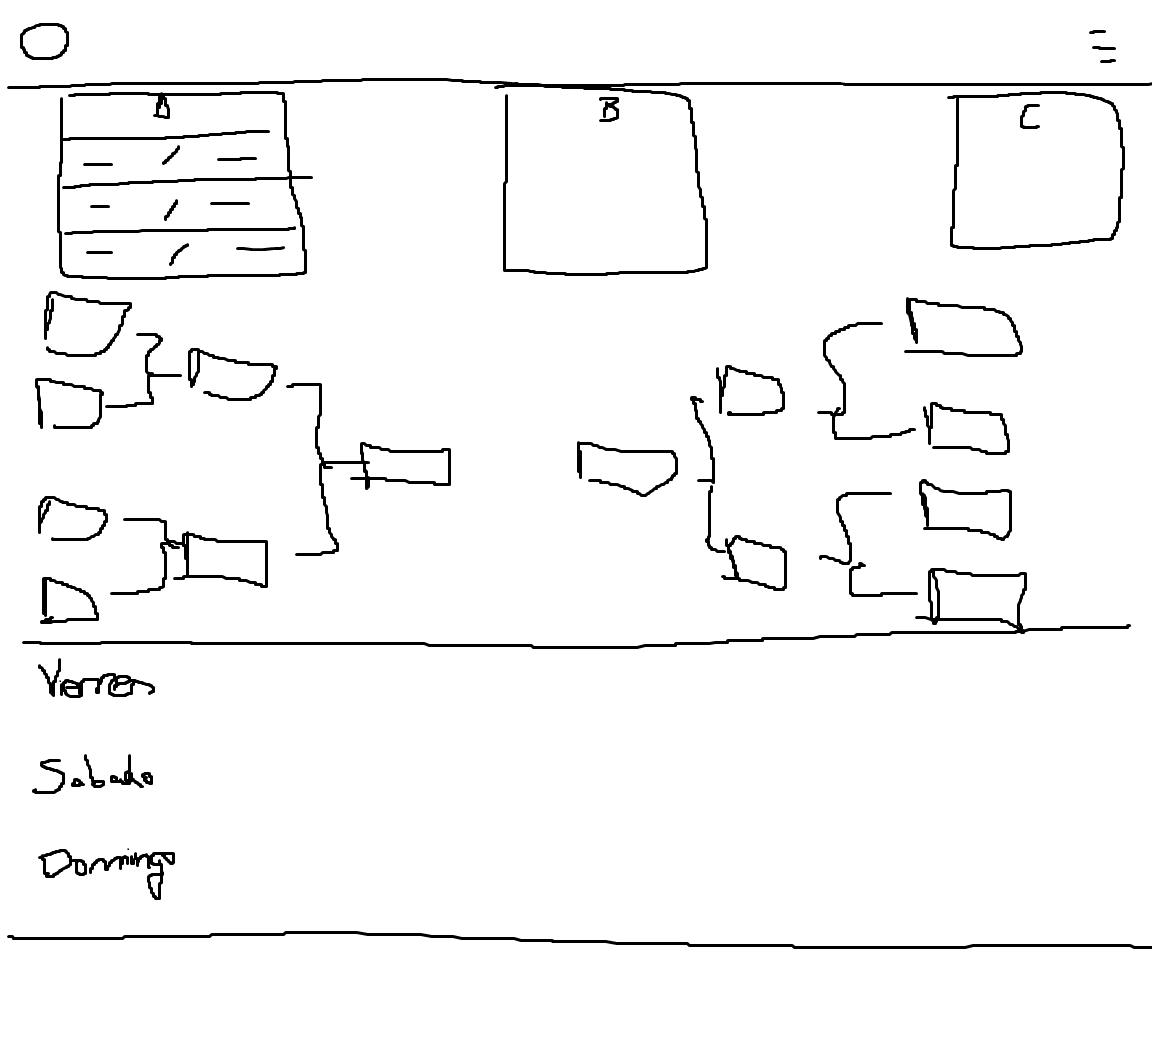 A B C
Viernes
Sabado
Domingo